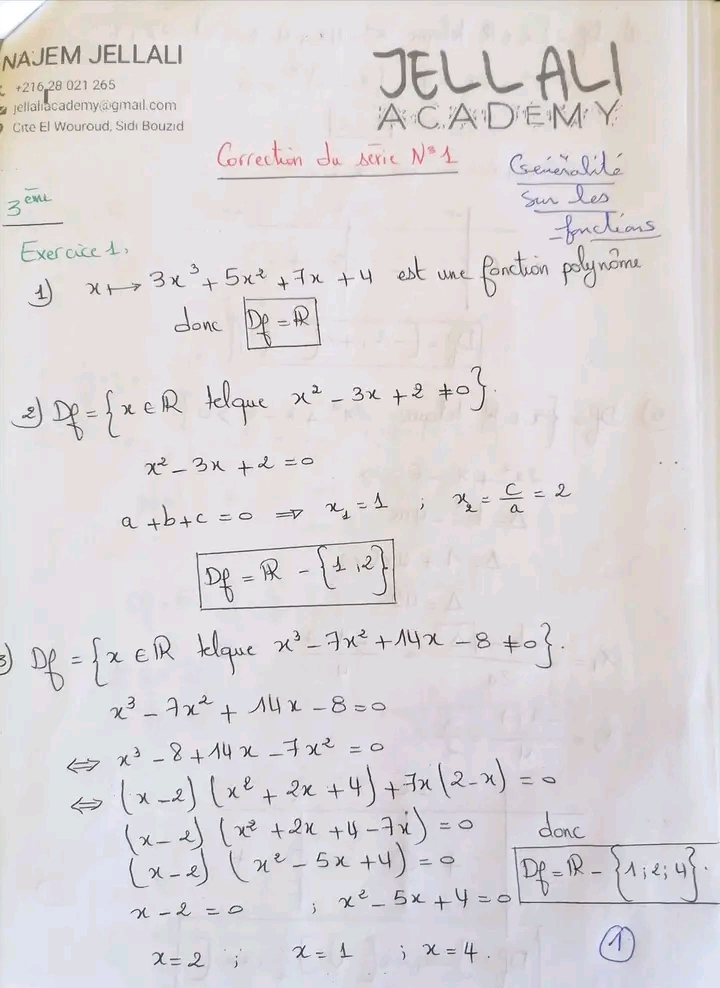 NAJEM JELLALI
+216 28 021 265
jellaliacademy@gmail.com
Cite El Wouroud, Sidi Bouzid
JELLALI
ACADEMY
Correction du serie N°1
Généralité
sur les
fonctions
3ème
Exercice 1,
1) x ↦ 3x³ + 5x² + 7x + 4 est une fonction polynôme
donc Df = ℝ
2) Df = {x ∈ ℝ telque x² - 3x + 2 ≠ 0}.
x² - 3x + 2 = 0
a + b + c = 0 ⇒ x₁ = 1 ; x₂ = c/a = 2
Df = ℝ - {1, 2}
3) Df = {x ∈ ℝ telque x³ - 7x² + 14x - 8 ≠ 0}.
x³ - 7x² + 14x - 8 = 0
⇔ x³ - 8 + 14x - 7x² = 0
⇔ (x - 2) (x² + 2x + 4) + 7x (2 - x) = 0
(x - 2) (x² + 2x + 4 - 7x) = 0
(x - 2) (x² - 5x + 4) = 0
x - 2 = 0 ; x² - 5x + 4 = 0
x = 2 ; x = 1 ; x = 4.
donc
Df = ℝ - {1; 2; 4}.
1